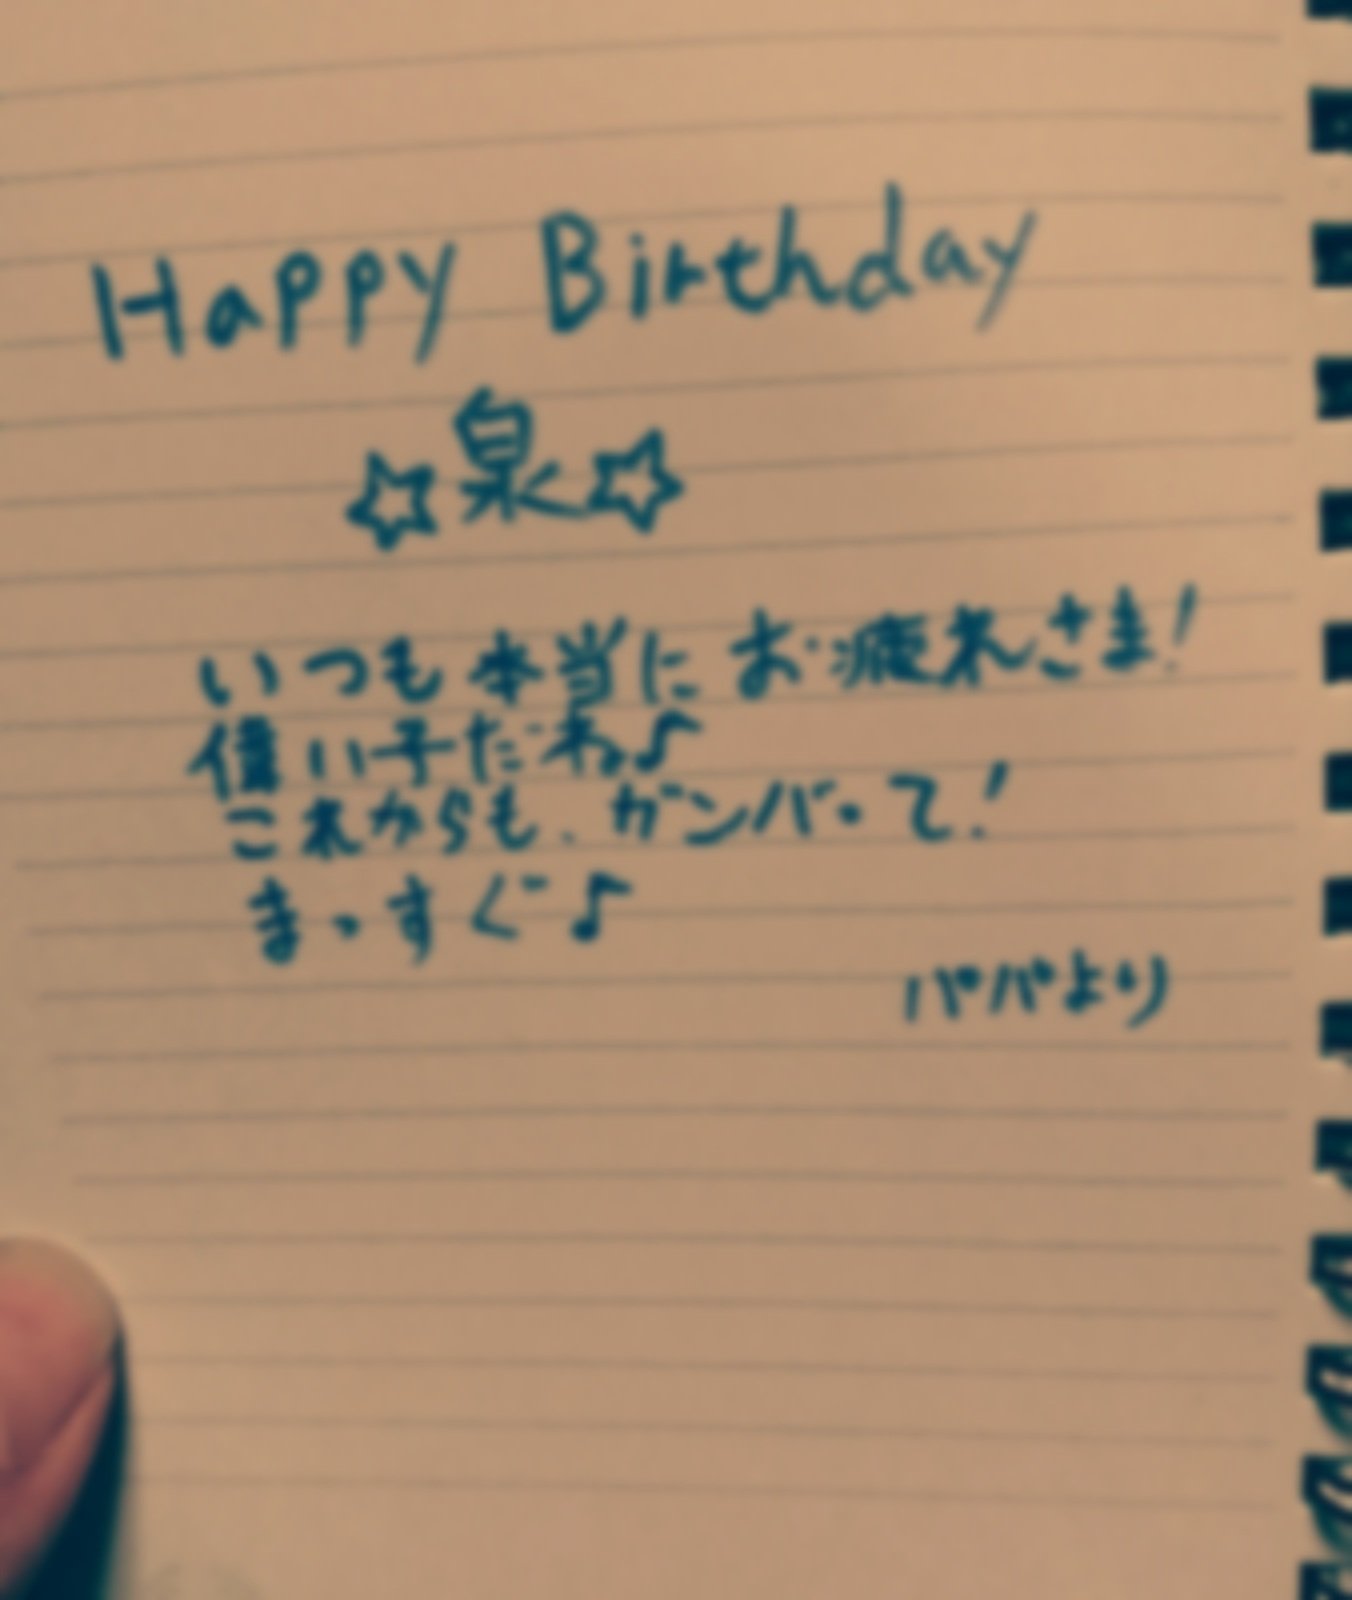 Happy Birthday
☆泉☆
いつも本当にお疲れさま!
偉い子だね♪
これからも、ガンバって!
まっすぐ♪
パパより